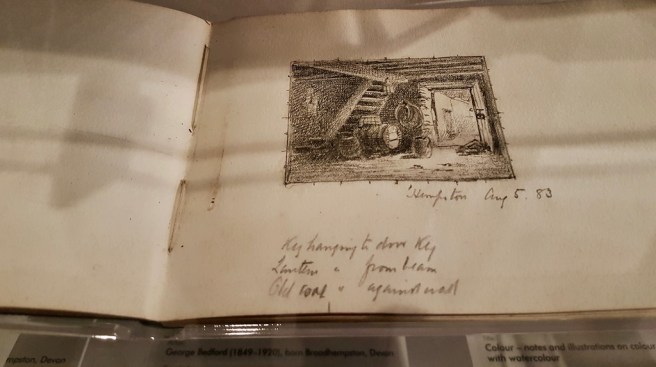 'Hempston Aug 5. 83
Key hanging to door Key
Lantern " from beam
Old coat " against wall
mpston, Devon
George Bedford (1849–1920), from Broadhempston, Devon
Colour – notes and illustrations on colour
with watercolour